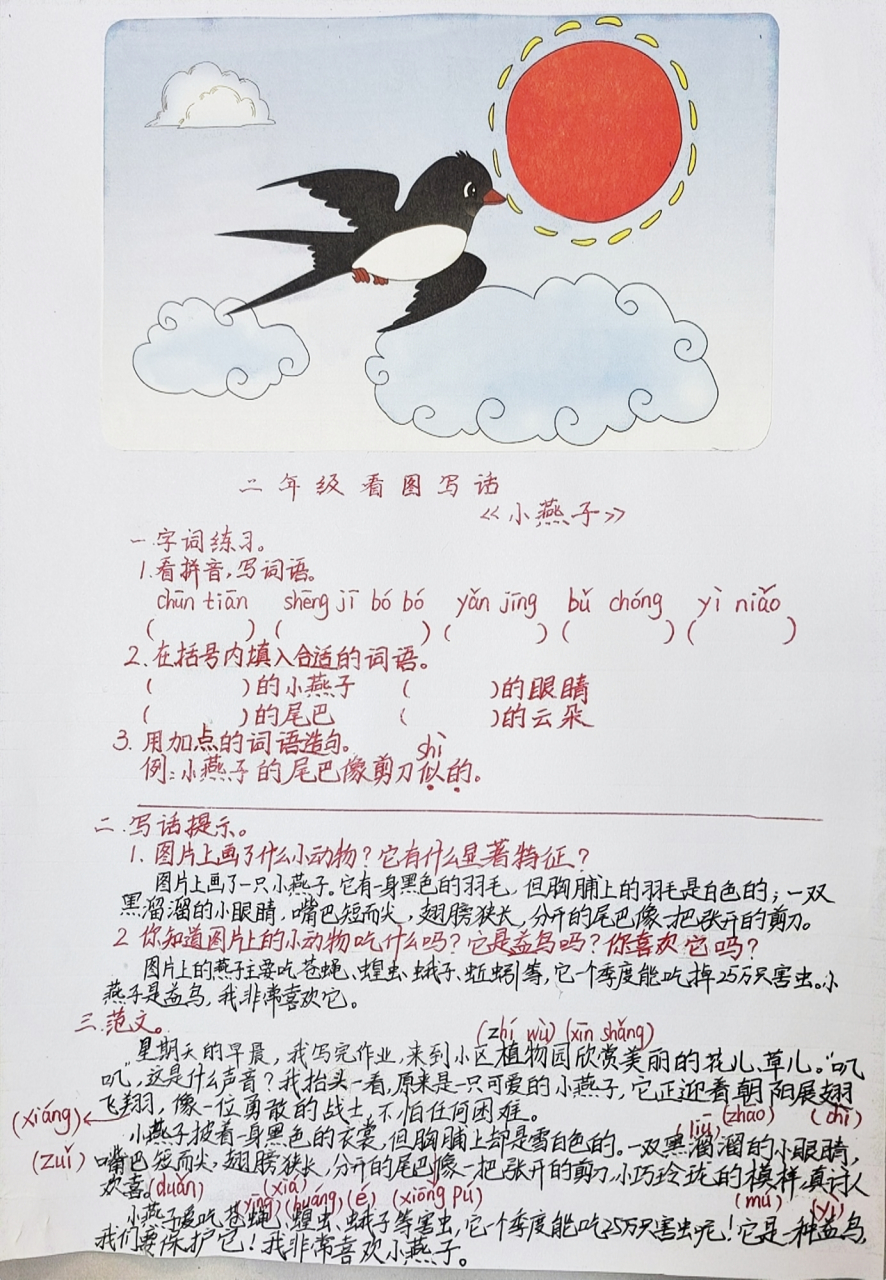 二年级看图写话
《小燕子》
一.字词练习。
1.看拼音,写词语。
chūn tiān shēng jī bó bó yǎn jīng bǔ chóng yì niǎo
( ) ( ) ( ) ( ) ( )
2.在括号内填入合适的词语。
( )的小燕子 ( )的眼睛
( )的尾巴 ( )的云朵
3.用加点的词语造句。
shì
例:小燕子的尾巴像剪刀似的。
二.写话提示。
1.图片上画了什么小动物?它有什么显著特征?
图片上画了一只小燕子。它有一身黑色的羽毛,但胸脯上的羽毛是白色的;一双
黑溜溜的小眼睛,嘴巴短而尖,翅膀狭长,分开的尾巴像一把张开的剪刀。
2 你知道图片上的小动物吃什么吗?它是益鸟吗?你喜欢它吗?
图片上的燕子主要吃苍蝇、蝗虫、蛾子、蚯蚓等,它一个季度能吃掉25万只害虫。小
燕子是益鸟,我非常喜欢它。
三.范文。
(zhí wù) (xīn shǎng)
星期天的早晨,我写完作业,来到小区植物园欣赏美丽的花儿、草儿。“叽
叽”,这是什么声音?我抬头一看,原来是一只可爱的小燕子,它正迎着朝阳展翅
飞翔,像一位勇敢的战士,不怕任何困难。
(xiáng) (liū) (zhao) (chì)
小燕子披着一身黑色的衣裳,但胸脯上却是雪白色的。一双黑溜溜的小眼睛,
(zuǐ) 嘴巴短而尖,翅膀狭长,分开的尾巴像一把张开的剪刀,小巧玲珑的模样,真讨人
欢喜。(duǎn) (xiá)
(yíng) (huáng) (é) (xiōng pú) (mú) (yì)
小燕子爱吃苍蝇、蝗虫、蛾子等害虫,它一个季度能吃25万只害虫呢!它是一种益鸟,
我们要保护它!我非常喜欢小燕子。